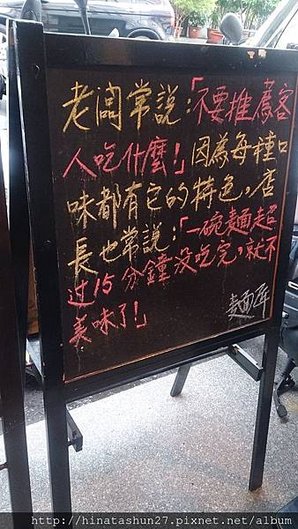 老闆常說：「不要推薦客
人吃什麼！」因為每種口
味都有它的特色，店
長也常說：「一碗麵超
過15分鐘沒吃完，就不
美味了！」
麵屋
http://hinatashun27.pixnet.net/album